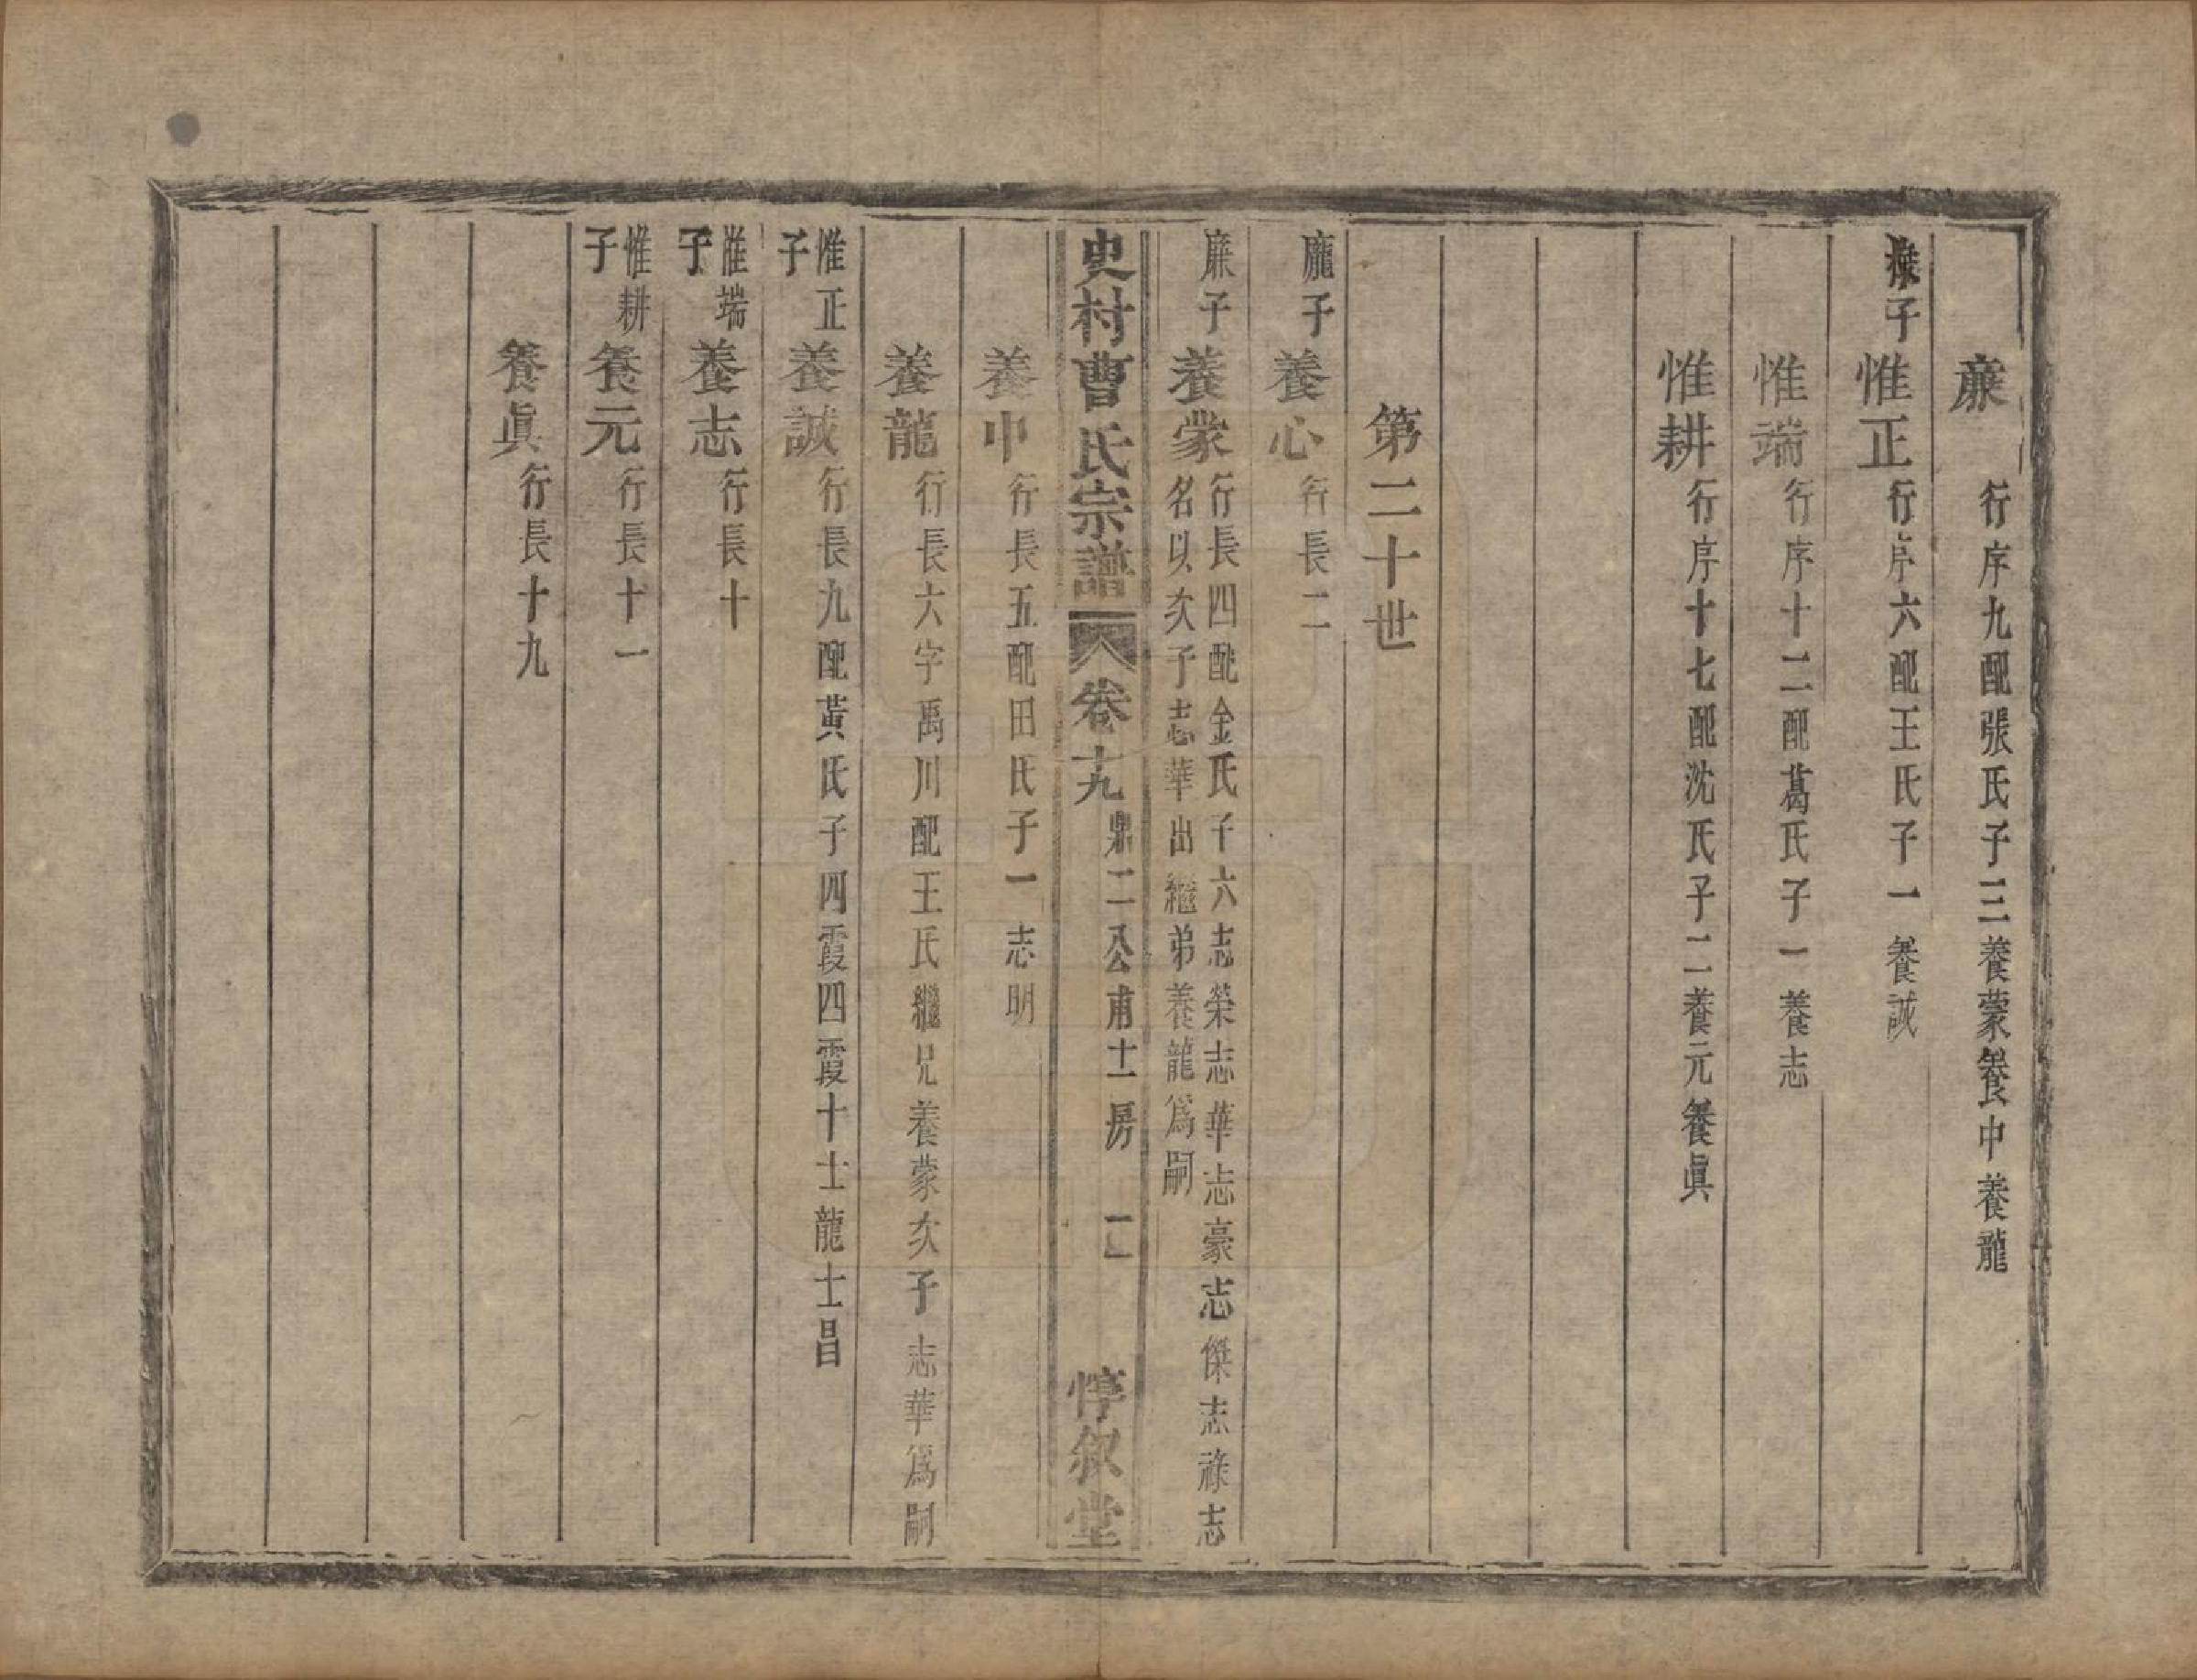 廉　行序九配張氏子三養蒙養中養龍
子惟正行序六配王氏子一養誠
惟端行序十二配葛氏子一養志
惟耕行序十七配沈氏子二養元養眞
第二十世
龐子養心行長二
廉子養蒙行長四配金氏子六志榮志華志豪志傑志祿志
名以次子志華出繼弟養龍爲嗣
史村曹氏宗譜　卷十九　鼎二公甫士房　二　惇叙堂
養中行長五配田氏子一志明
養龍行長六字禹川配王氏繼兄養蒙次子志華爲嗣
惟正子養誠行長九配黃氏子四霞四霞十士龍士昌
惟端子養志行長十
惟耕子養元行長十一
養眞行長十九